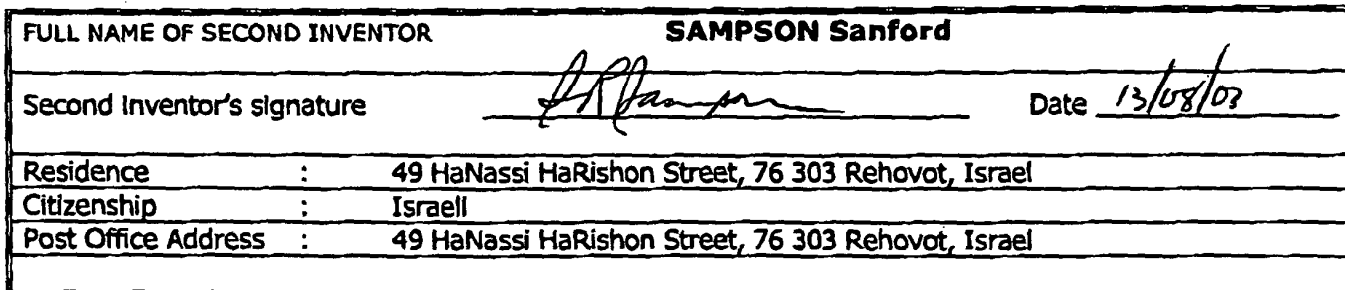 FULL NAME OF SECOND INVENTOR SAMPSON Sanford
Second Inventor's signature SRSampson Date 13/08/03
Residence : 49 HaNassi HaRishon Street, 76 303 Rehovot, Israel
Citizenship : Israeli
Post Office Address : 49 HaNassi HaRishon Street, 76 303 Rehovot, Israel